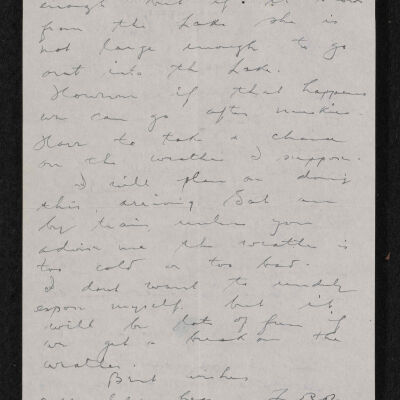 enough but if it is
from the Lake she is
not large enough to go
out into the Lake.
However if that happens
we can go after muskies.
Have to take a chance
on the weather I suppose.
I will plan on doing
this, arriving Sat am
by train, unless you
advise me the weather is
too cold or too bad.
I dont want to unduly
expose myself, but it
will be lots of fun if
we get a break on the
weather.
Best wishes